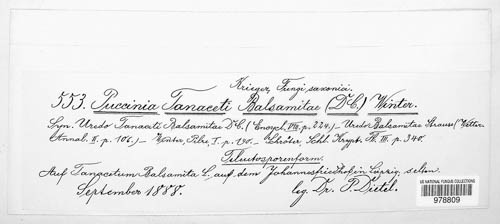 Krieger, Fungi saxonici.
553. Puccinia Tanaceti Balsamitae (DC.) Winter.
Syn. Uredo Tanaceti Balsamitae DC. (Encycl. VIII. p. 224.) – Uredo Balsamitae Strauss (Wetter.
Annal. II. p. 106.) – Winter, Pilze, I. p. 190. – Schröter, Schl. Krypt. Fl. III. p. 340.
Teleutosporenform.
Auf Tanacetum Balsamita L. auf dem Johannisfriedhof in Leipzig, selten.
September 1888. leg. Dr. P. Dietel.
US NATIONAL FUNGUS COLLECTIONS
978809